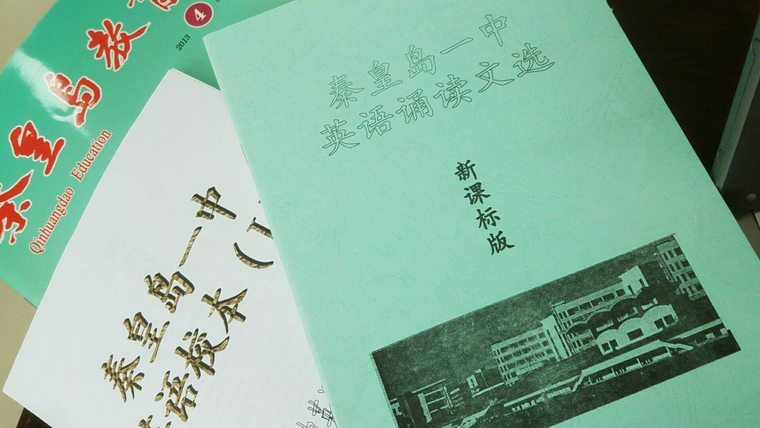 秦皇岛教育
2013
4
Qinhuangdao Education
秦皇岛一中
英语校本(I
秦皇岛一中
英语诵读文选
新课标版